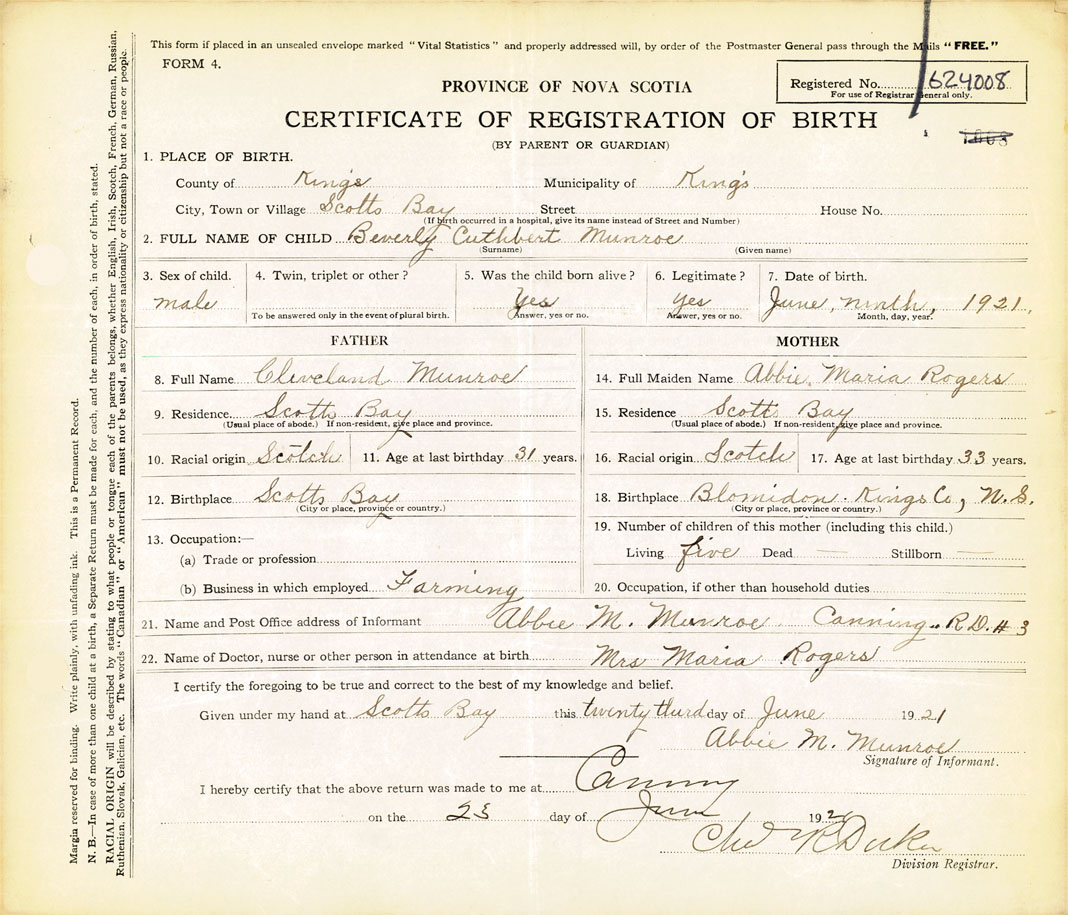 This form if placed in an unsealed envelope marked "Vital Statistics" and properly addressed will, by order of the Postmaster General pass through the Mails "FREE."
FORM 4.
Registered No. 624008
For use of Registrar General only.
PROVINCE OF NOVA SCOTIA
CERTIFICATE OF REGISTRATION OF BIRTH
(BY PARENT OR GUARDIAN)
1. PLACE OF BIRTH.
County of King's Municipality of King's
City, Town or Village Scotts Bay Street House No.
(If birth occurred in a hospital, give its name instead of Street and Number)
2. FULL NAME OF CHILD Beverly Cuthbert Munroe
(Surname) (Given name)
3. Sex of child. 4. Twin, triplet or other? 5. Was the child born alive? 6. Legitimate? 7. Date of birth.
male Yes yes June, ninth, 1921.
To be answered only in the event of plural birth. Answer, yes or no. Answer, yes or no. Month, day, year.
FATHER
8. Full Name Cleveland Munroe
9. Residence Scotts Bay
(Usual place of abode.) If non-resident, give place and province.
10. Racial origin Scotch 11. Age at last birthday 31 years.
12. Birthplace Scotts Bay
(City or place, province or country.)
13. Occupation:—
(a) Trade or profession
(b) Business in which employed Farming
MOTHER
14. Full Maiden Name Abbie Maria Rogers
15. Residence Scotts Bay
(Usual place of abode.) If non-resident, give place and province.
16. Racial origin Scotch 17. Age at last birthday 33 years.
18. Birthplace Blomidon Kings Co, N.S.
(City or place, province or country.)
19. Number of children of this mother (including this child.)
Living five Dead — Stillborn —
20. Occupation, if other than household duties
21. Name and Post Office address of Informant Abbie M. Munroe Canning R.D. # 3
22. Name of Doctor, nurse or other person in attendance at birth Mrs Maria Rogers
I certify the foregoing to be true and correct to the best of my knowledge and belief.
Given under my hand at Scotts Bay this twenty third day of June 1921
Abbie M. Munroe
Signature of Informant.
I hereby certify that the above return was made to me at Canning
on the 23 day of June 192
Division Registrar.
Margin reserved for binding. Write plainly, with unfading ink. This is a Permanent Record.
N. B.—In case of more than one child at a birth, a Separate Return must be made for each, and the number of each, in order of birth, stated.
RACIAL ORIGIN will be described by stating to what people or tongue each of the parents belongs, whether English, Irish, Scotch, French, German, Russian,
Ruthenian, Slovak, Galician, etc. The words "Canadian" or "American" must not be used, as they express nationality or citizenship but not a race or people.